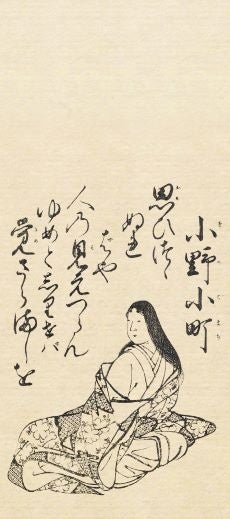 小野小町
思ひつゝ
ぬれ
ばや
人の見えつらん
ゆめとしりせば
覚さらましを